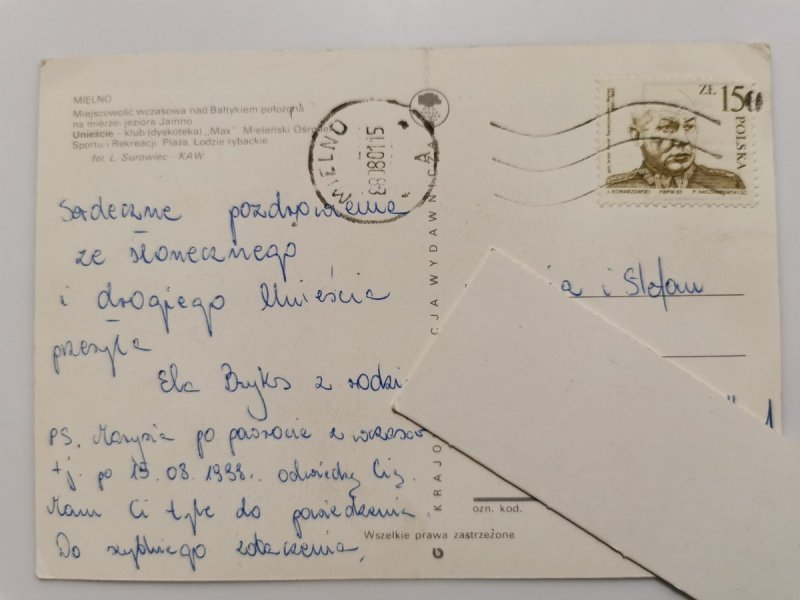 MIELNO
Miejscowość wczasowa nad Bałtykiem położona
na mierzei jeziora Jamno.
Unieście - klub (dyskoteka) „Max". Mieleński Ośrodek
Sportu i Rekreacji. Plaża. Łodzie rybackie
fot. L. Surowiec - KAW
MIELNO
A
ZŁ 150
POLSKA
J. KONARZEWSKI PWPW 87
KRAJO
CJA WYDAWNICZA
Serdeczne pozdrowienia
ze słonecznego
i drogiego Unieścia
przesyła
Ela Bryks z rodzi
PS. Marysia po powrocie z wczasów
tj. po 15.08.1988. odwiedzę Cię.
Mam Ci tyle do powiedzenia
Do szybkiego zobaczenia,
i Stefan
ozn. kod.
Wszelkie prawa zastrzeżone